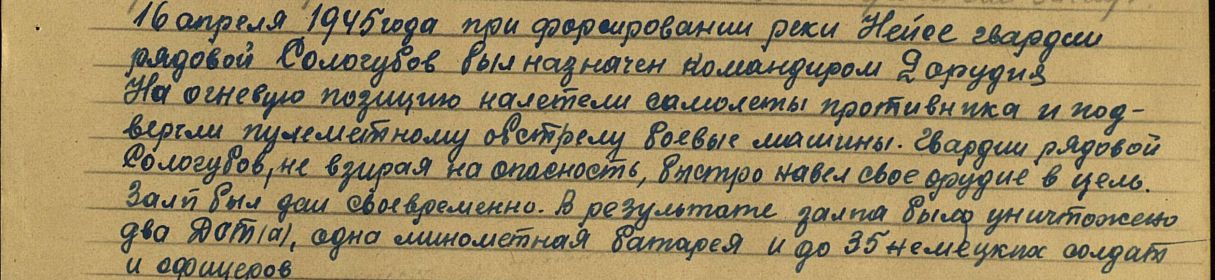 16 апреля 1945 года при форсировании реки Нейсе гвардии
рядовой Сологубов был назначен командиром 2 орудия
На огневую позицию налетели самолеты противника и под-
вергли пулеметному обстрелу боевые машины. Гвардии рядовой
Сологубов, не взирая на опасность, быстро навел свое орудие в цель.
Залп был дан своевременно. В результате залпа было уничтожено
два Дот(а), одна минометная батарея и до 35 немецких солдат
и офицеров